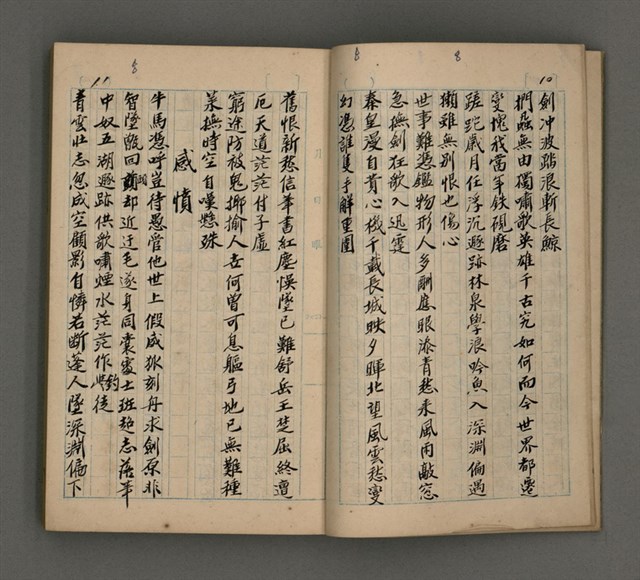 10
劍冲波踏浪斬長鯨
捫蝨無由獨嘯歌英雄千古究如何而今世界都遷
變愧我當年鉄硯磨
蹉跎歲月任浮沉遯跡林泉學浪吟魚入深淵偏遇
獺雖無別恨也傷心
世事難憑鑑物形人多酬應眼添青愁来風雨敲窓
急撫劍狂歌入迅霆
秦皇漫自費心機千載長城映夕暉北望風雲愁變
幻憑誰隻手解重圍
11
舊恨新愁信筆書紅塵悞墜已難舒岳王楚屈終遭
厄天道茫茫付子虛
窮途防被鬼揶揄人去何曾可息軀弓地已無難種
菜撫時空自嘆懸殊
感憤
牛馬憑呼豈待愚管他世上假威狐刻舟求劍原非
智墜甑回頭却近迂毛遂身同囊處士班超志落筆
中奴五湖遯跡供歌嘯煙水茫茫作釣徒
青雲壯志忽成空顧影自憐若斷蓬人墜深淵偏下